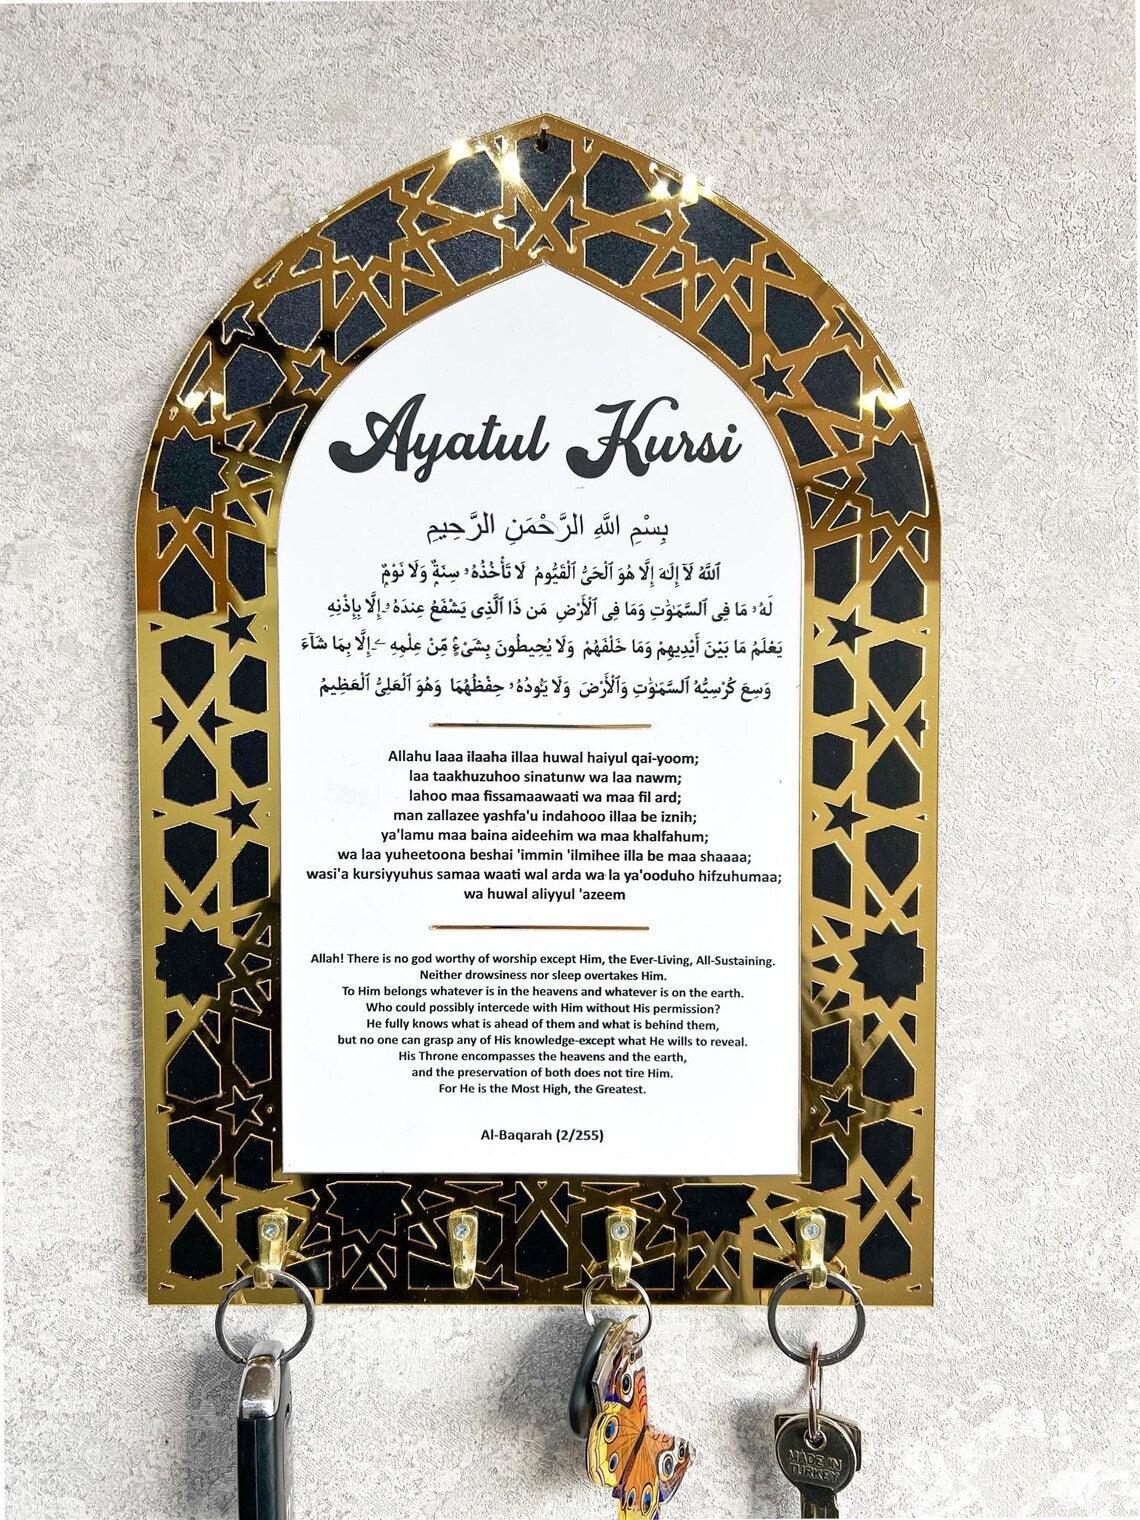 Ayatul Kursi
بِسْمِ اللَّهِ الرَّحْمَنِ الرَّحِيمِ
ٱللَّهُ لَآ إِلَٰهَ إِلَّا هُوَ ٱلْحَىُّ ٱلْقَيُّومُ لَا تَأْخُذُهُۥ سِنَةٌ وَلَا نَوْمٌ
لَهُۥ مَا فِى ٱلسَّمَٰوَٰتِ وَمَا فِى ٱلْأَرْضِ مَن ذَا ٱلَّذِى يَشْفَعُ عِندَهُۥٓ إِلَّا بِإِذْنِهِ
يَعْلَمُ مَا بَيْنَ أَيْدِيهِمْ وَمَا خَلْفَهُمْ وَلَا يُحِيطُونَ بِشَىْءٍ مِّنْ عِلْمِهِۦٓ إِلَّا بِمَا شَآءَ
وَسِعَ كُرْسِيُّهُ ٱلسَّمَٰوَٰتِ وَٱلْأَرْضَ وَلَا يَـُٔودُهُۥ حِفْظُهُمَا وَهُوَ ٱلْعَلِىُّ ٱلْعَظِيمُ
Allahu laaa ilaaha illaa huwal haiyul qai-yoom;
laa taakhuzuhoo sinatunw wa laa nawm;
lahoo maa fissamaawaati wa maa fil ard;
man zallazee yashfa'u indahooo illaa be iznih;
ya'lamu maa baina aideehim wa maa khalfahum;
wa laa yuheetoona beshai 'immin 'ilmihee illa be maa shaaaa;
wasi'a kursiyyuhus samaa waati wal arda wa la ya'ooduho hifzuhumaa;
wa huwal aliyyul 'azeem
Allah! There is no god worthy of worship except Him, the Ever-Living, All-Sustaining.
Neither drowsiness nor sleep overtakes Him.
To Him belongs whatever is in the heavens and whatever is on the earth.
Who could possibly intercede with Him without His permission?
He fully knows what is ahead of them and what is behind them,
but no one can grasp any of His knowledge-except what He wills to reveal.
His Throne encompasses the heavens and the earth,
and the preservation of both does not tire Him.
For He is the Most High, the Greatest.
Al-Baqarah (2/255)
MADE IN
TURKEY